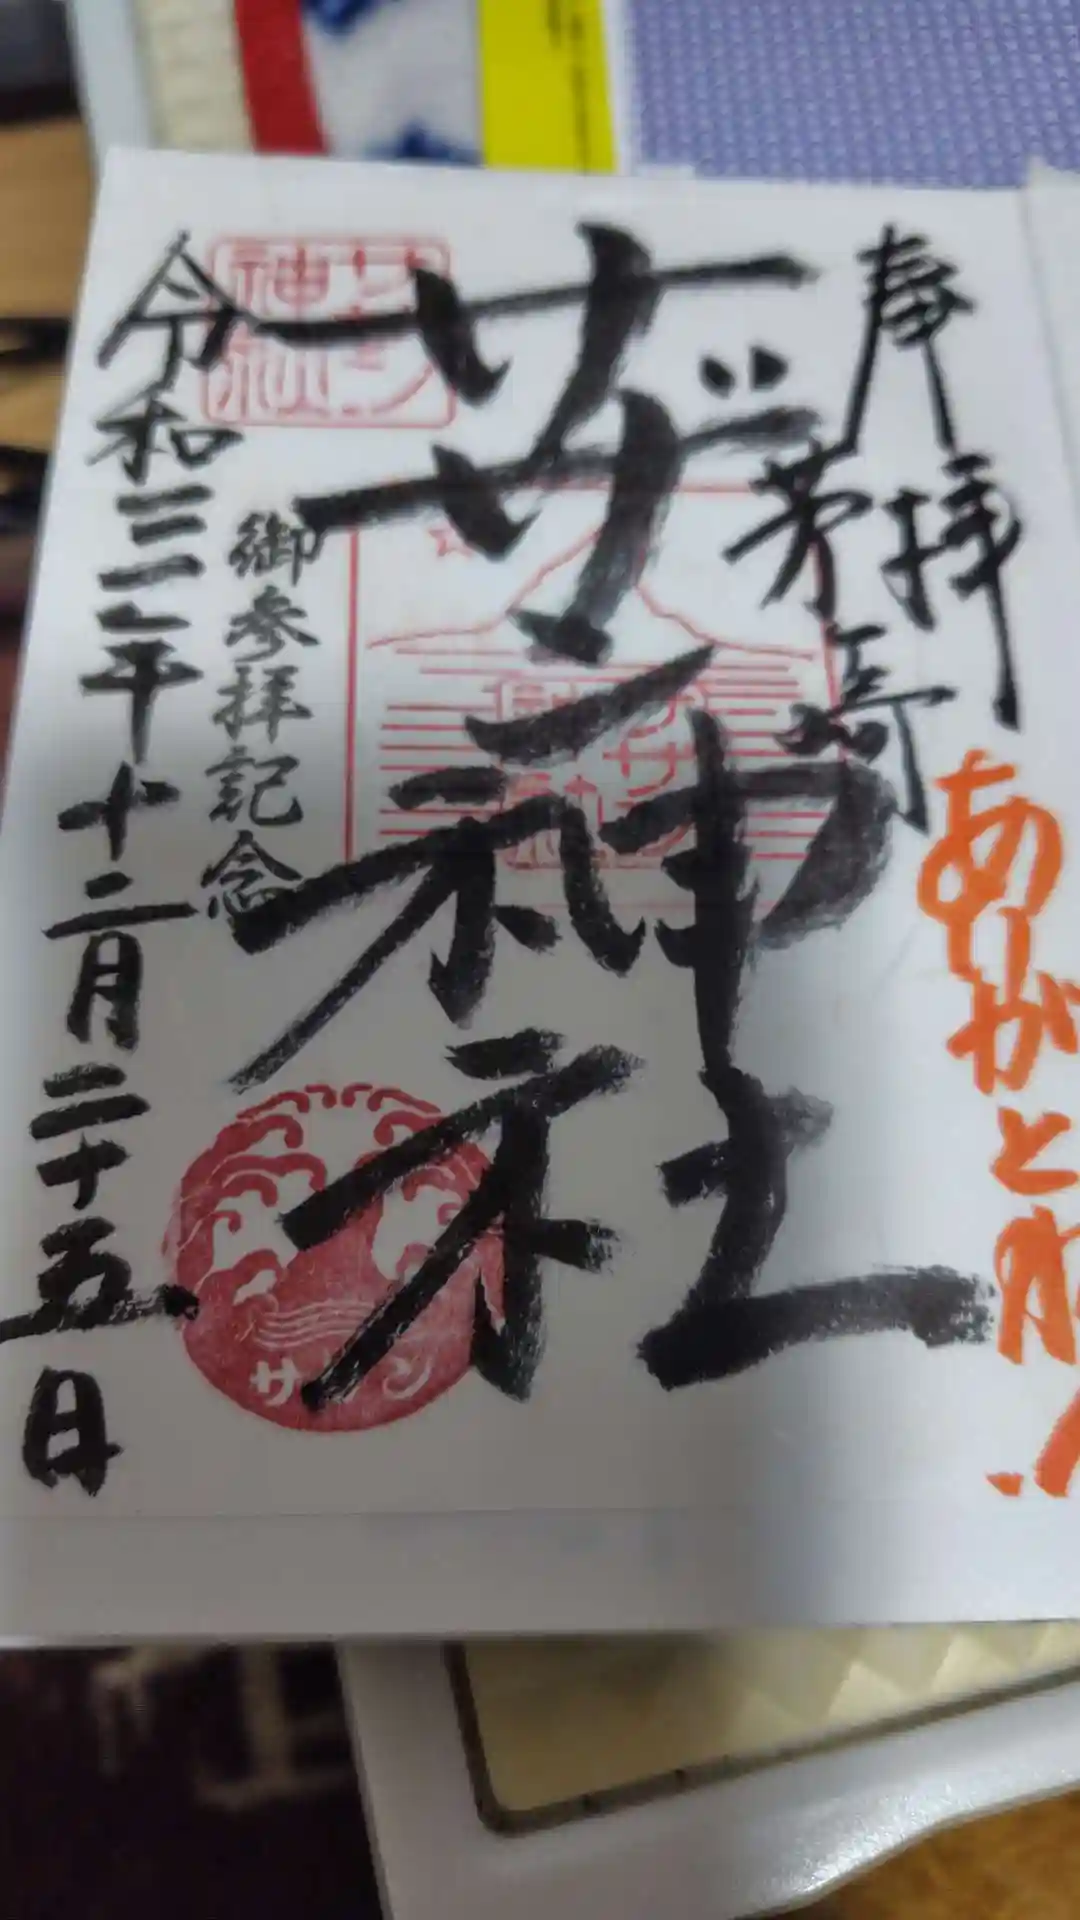 奉拝
茅ヶ崎
サザン神社
あ
が
と
御参拝記念
令和三年十二月二十五日
サザン
神社
サザン
神社
サザン